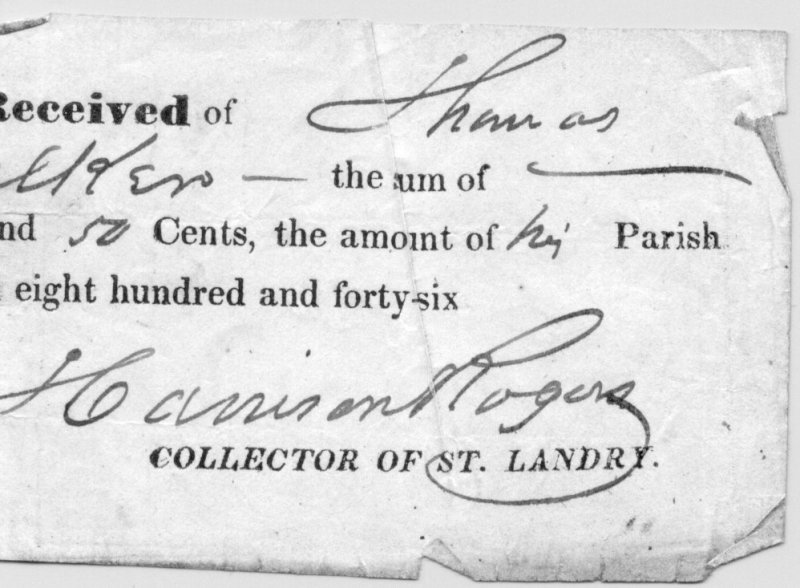 Received of Thomas
— the sum of —
nd 50 Cents, the amount of his Parish
eight hundred and forty-six
Harrison Rogers
COLLECTOR OF ST. LANDRY.